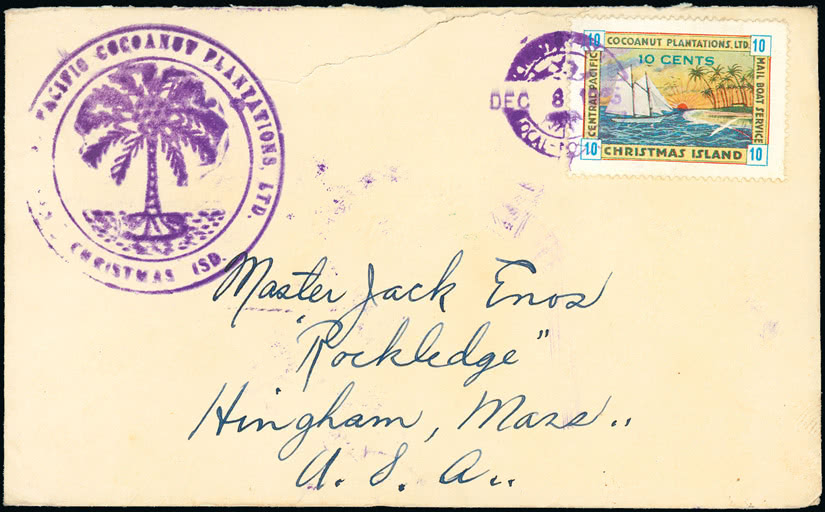 PACIFIC COCOANUT PLANTATIONS, LTD.
CHRISTMAS ISD.
DEC 8
LOCAL
10 COCOANUT PLANTATIONS, LTD. 10
10 CENTS
CENTRAL PACIFIC
MAIL BOAT SERVICE
10 CHRISTMAS ISLAND 10
Master Jack Enos
"Rockledge"
Hingham, Mass..
U. S. A..